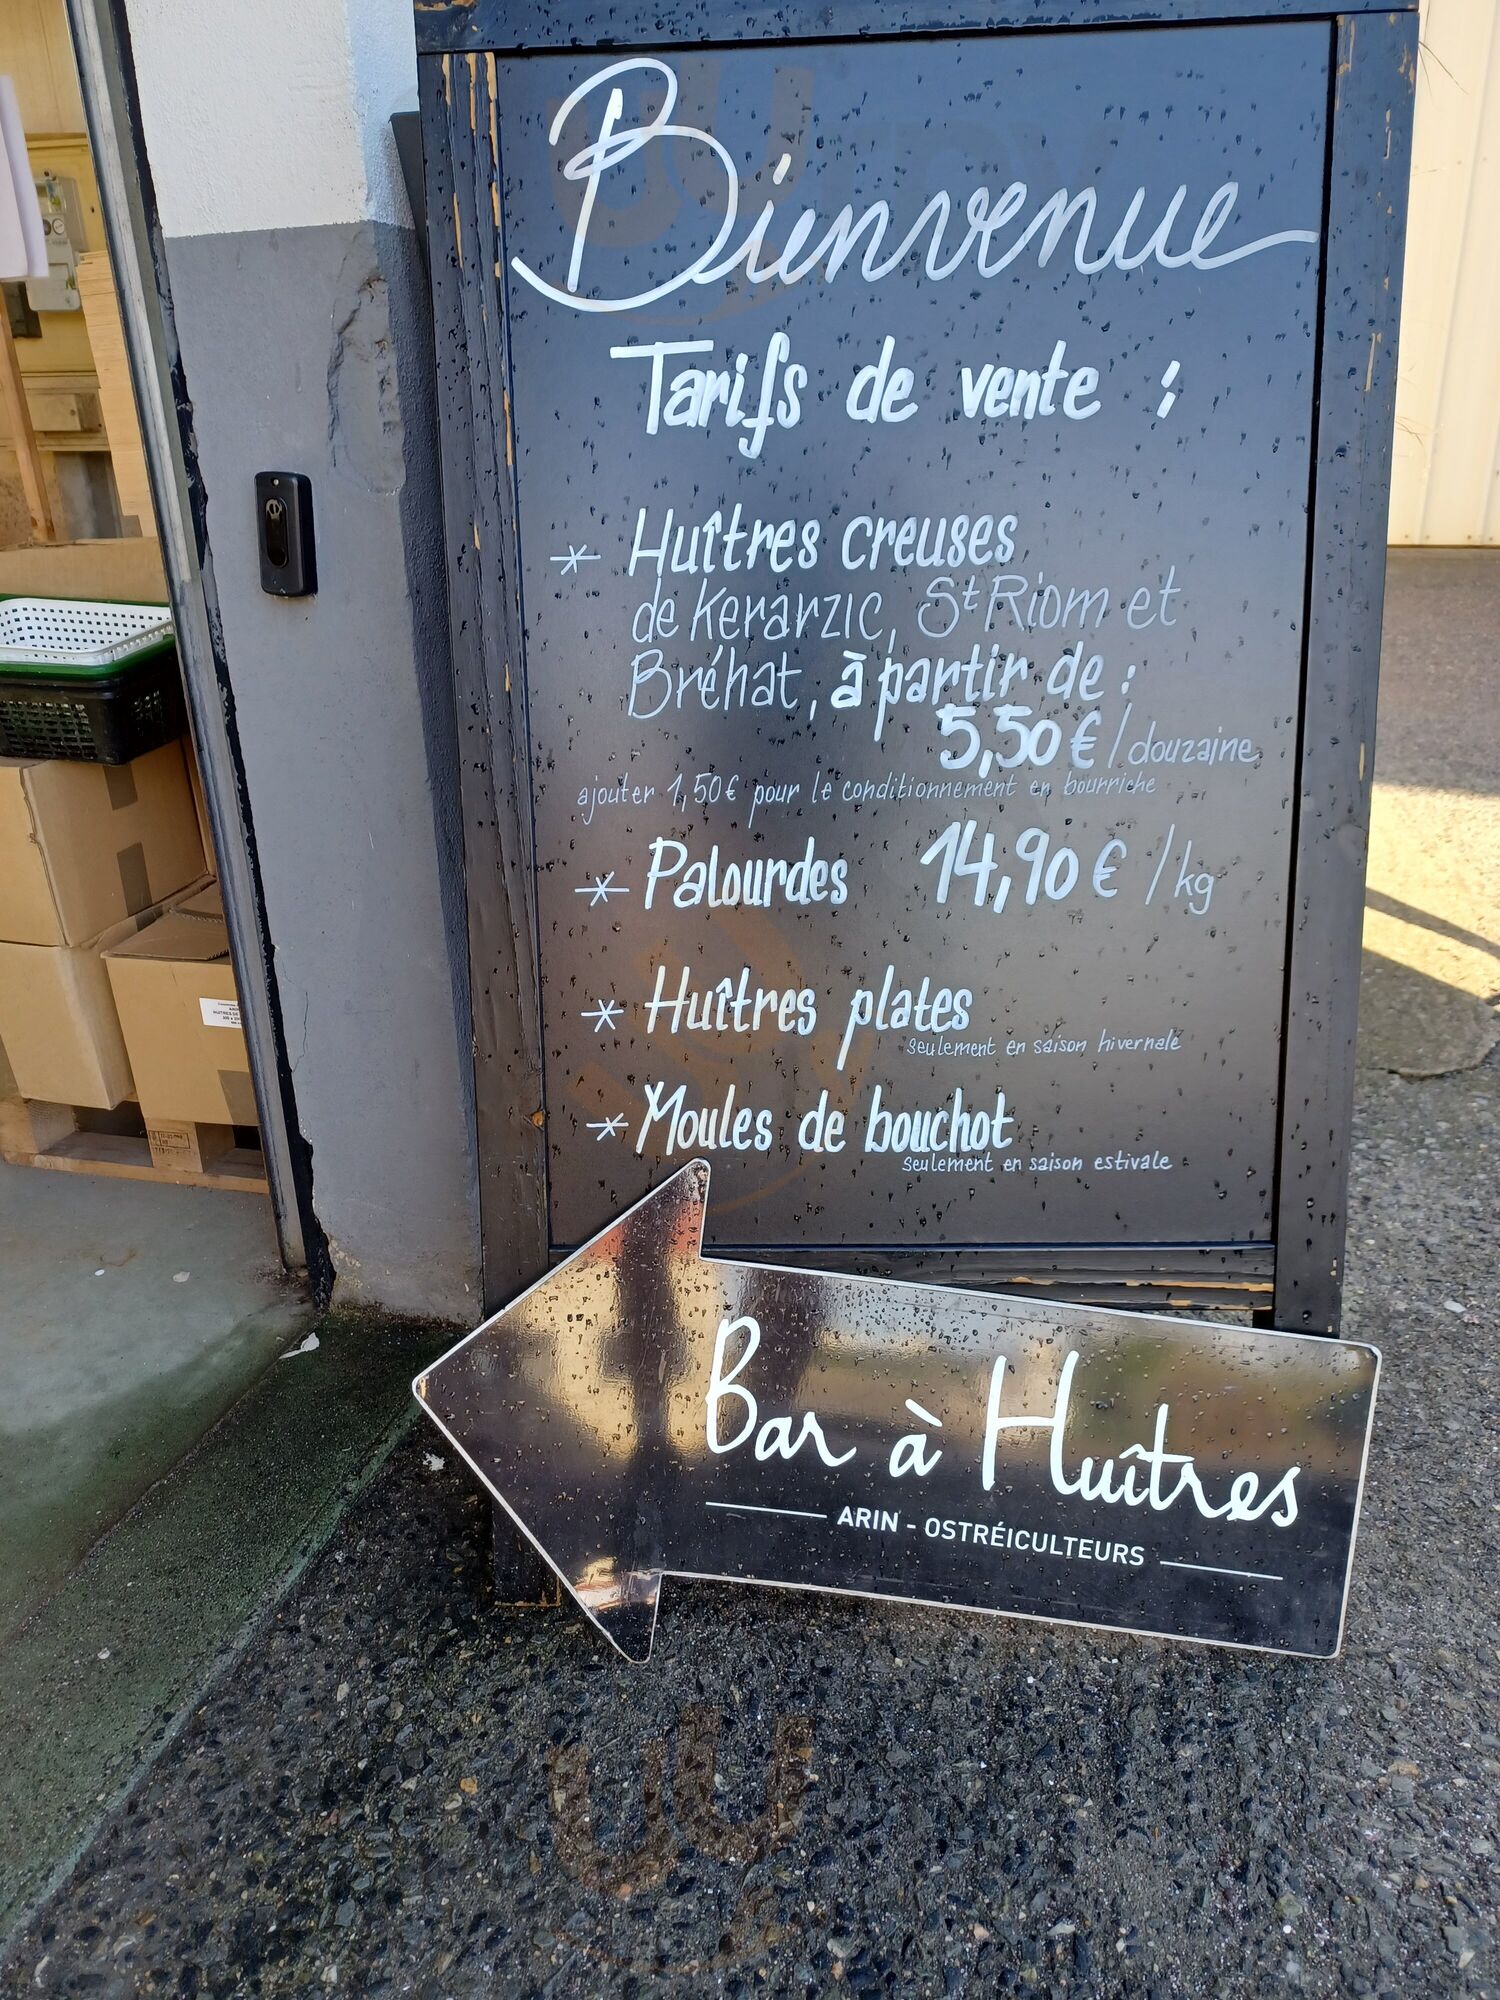 Bienvenue
Tarifs de vente :
* Huîtres creuses
de Kerarzic, St Riom et
Bréhat, à partir de :
5,50 € / douzaine
ajouter 1,50 € pour le conditionnement en bourriche
* Palourdes 14,90 € / kg
* Huîtres plates
seulement en saison hivernale
* Moules de bouchot
seulement en saison estivale
Bar à Huîtres
ARIN - OSTRÉICULTEURS